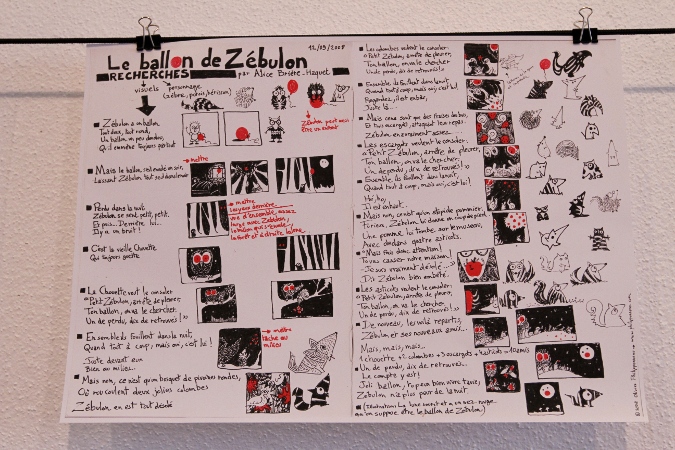 12/03/2008
Le ballon de Zébulon
RECHERCHES par Alice Brière-Haquet
visuels personnage
(zèbre, putois, hérisson)
Zébulon peut-être
être un enfant
Zébulon a un ballon
Tout doux, tout rond,
Un ballon un peu dondon,
Qu'il emmène toujours partout
→ mettre
Mais le ballon, sed soir,
Laissant Zébulon tout seul dans le noir
Perdu dans la nuit
Zébulon se sent petit, petit.
Et puis... Derrière lui...
Il y a un bruit!
→ mettre
C'est la vieille Chouette
Qui toujours guette
La Chouette veut le consoler:
"Petit Zébulon, arrête de pleurer,
Ton ballon, on va le chercher.
Un de perdu, dix de retrouvés!"
Ensemble ils fouillent dans la nuit,
Quand tout à coup, mais oui, c'est lui!
Juste devant eux
Bien au milieu...
→ mettre
tâche au
milieu
Mais non, ce n'est qu'un bosquet de pivoines rondes,
Où roucoulent deux jolies colombes
Zébulon en est tout désolé
Les colombes veulent le consoler:
"Petit Zébulon, arrête de pleurer,
Ton ballon, on va le chercher
Un de perdu, dix de retrouvés!"
Ensemble ils fouillent dans la nuit,
Quand tout à coup, mais oui, c'est lui!
Regardez, il est en bas,
Juste là...
Mais ce ne sont que des fraises des bois,
Et trois escargots, attaquant leur repas.
Zébulon en a vraiment assez...
Les escargots veulent le consoler:
"Petit Zébulon, arrête de pleurer,
Ton ballon, on va le chercher,
Un de perdu, dix de retrouvés!"
Ensemble, ils fouillent dans la nuit,
Quand tout à coup, mais oui, c'est lui!
Mais non, ce n'est qu'un stupide pommier.
Furieux, Zébulon lui donne un coup de pied
Une pomme lui tombe sur le museau,
Avec dedans quatre asticots.
"Mais fais donc attention!
Tu vas casser notre maison!"
"Je suis vraiment désolé..."
Dit Zébulon bien embêté.
Les asticots veulent le consoler:
"Petit Zébulon, arrête de pleurer,
Ton ballon, on va le chercher,
Un de perdu, dix de retrouvés!"
De nouveau, les voilà repartis,
Zébulon et ses nouveaux amis...
Mais, mais, mais...
1 chouette + 2 colombes + 3 escargots + 4 asticots = 10 amis
Un de perdu, dix de retrouvés...
Le compte y est!
Joli ballon, tu peux bien vivre ta vie,
Zébulon n'a plus peur de la nuit.
(Illustration: La lune sourit et a un nez rouge
qu'on suppose être le ballon de Zébulon)